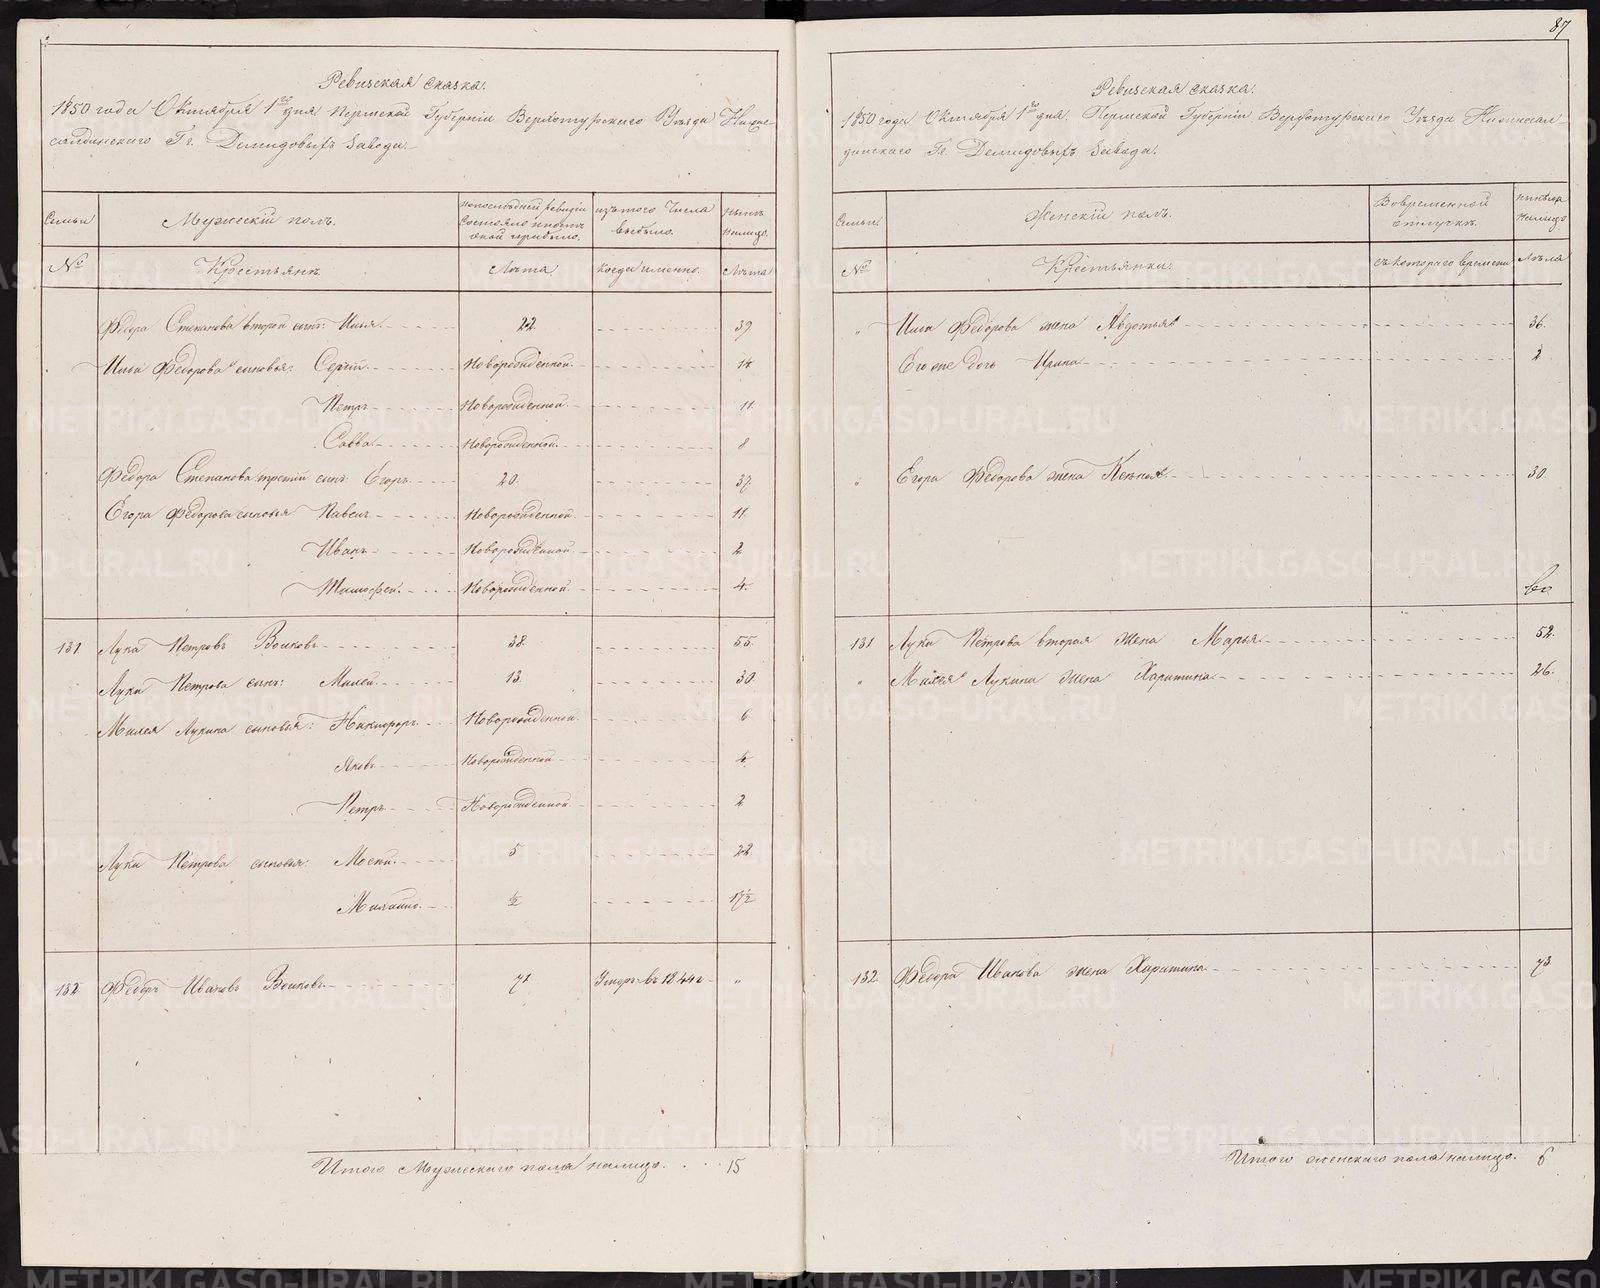 87
Ревизская сказка.
1850 года Октября 1го дня Пермской Губерніи Верхотурскаго Уѣзда Нижне-
салдинскаго Гг. Демидовыхъ Завода.
Семьи
Мужескій полъ.
по последней ревизіи состояло и после оной прибыло.
изътого Числа выбыло.
нынѣ налицо.
№
Крестьянѣ.
Лѣта
когда именно.
Лѣта
Федора Степанова второй сынъ: Илья. 22. 39
Ильи Федорова сыновья: Сергій. Новорожденной. 14
Петръ Новорожденной. 11.
Савва Новорожденной. 8
Федора Степанова третій сынъ: Егоръ 20. 37.
Егора Федорова сыновья Павелъ Новорожденной. 11.
Иванъ Новорожденной. 2
Тимофей. Новорожденной. 4.
131. Лука Петровъ Волковъ 38. 55.
Луки Петрова сынъ: Милей 13. 30.
Милея Лукина сыновья: Никифоръ Новорожденной. 6
Яковъ Новорожденной 4
Петръ Новорожденной 2
Луки Петрова сыновья: 5 22
½ 17½
132. Федоръ Ивановъ Волковъ 71 Умеръ въ 1844 г „
Итого Мужескаго пола налицо. 15
Ревизская сказка.
1850 года Октября 1го дня. Пермской Губерніи Верхотурскаго Уѣзда Нижнесал-
динскаго Гг. Демидовыхъ Завода.
Семьи.
Женскій полъ.
Вовременной отлучкѣ.
ныньѣ налицо
№
Крестьянки.
съ котораго времени
Лѣта
„ Ильи Федорова жена Авдотья 36.
Его же дочь Ирина 2
„ Егора Федорова жена 30
131 Луки Петрова вторая жена Марья 52.
„ Милея Лукина жена Харитина 26.
132. Федора Иванова жена Харитина 73
Итого женскаго пола налицо. 6